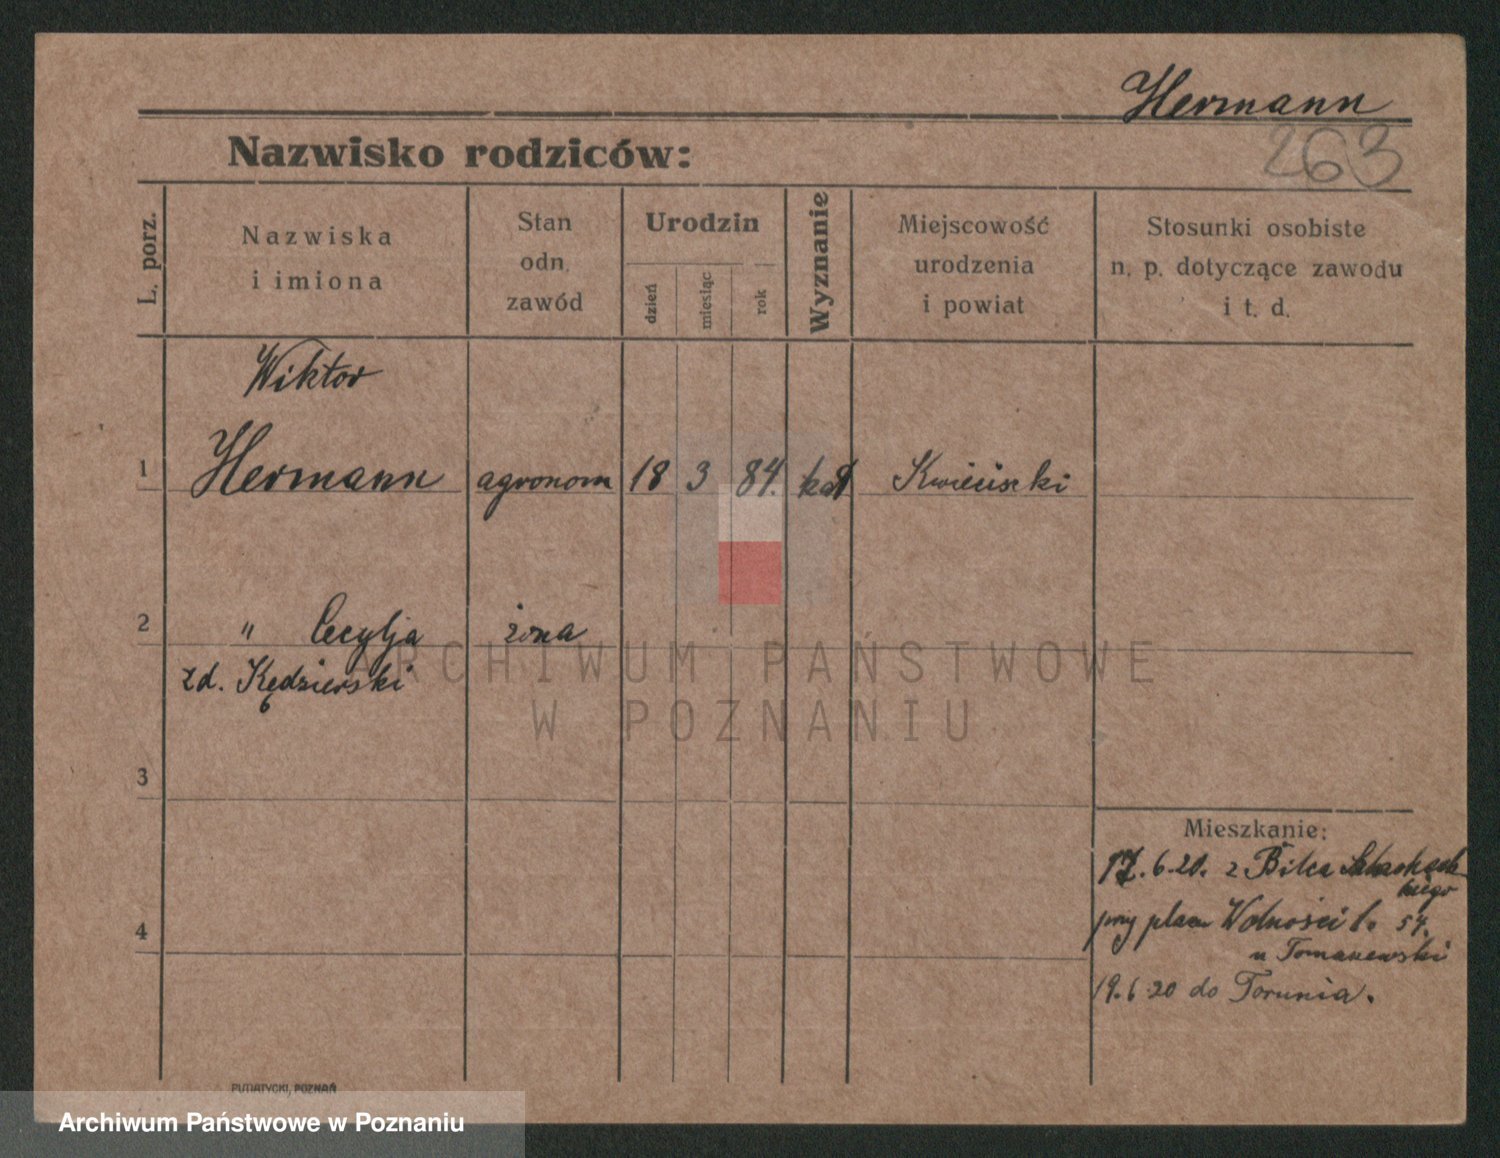 Hermann
263
Nazwisko rodziców:
L. porz.
Nazwiska
i imiona
Stan
odn.
zawód
Urodzin
dzień
miesiąc
rok
Wyznanie
Miejscowość
urodzenia
i powiat
Stosunki osobiste
n. p. dotyczące zawodu
i t. d.
Wiktor
1 Hermann agronom 18 3 84. kat
2 " Cecylja żona
zd. Kędzierski
3
4
Mieszkanie:
17. 6. 20. z
przy placu Wolności 54.
u Tomaszewski
19. 6 20 do Torunia.
PUTIATYCKI, POZNAŃ
ARCHIWUM PAŃSTWOWE
W POZNANIU
Archiwum Państwowe w Poznaniu